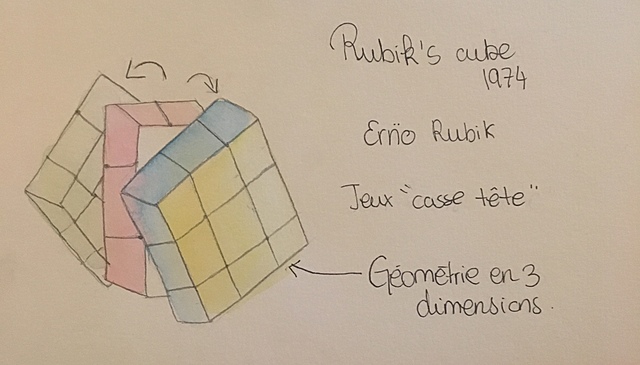 Rubik's cube
1974
Ernïo Rubik
Jeux "casse tête"
Géométrie en 3
dimensions.